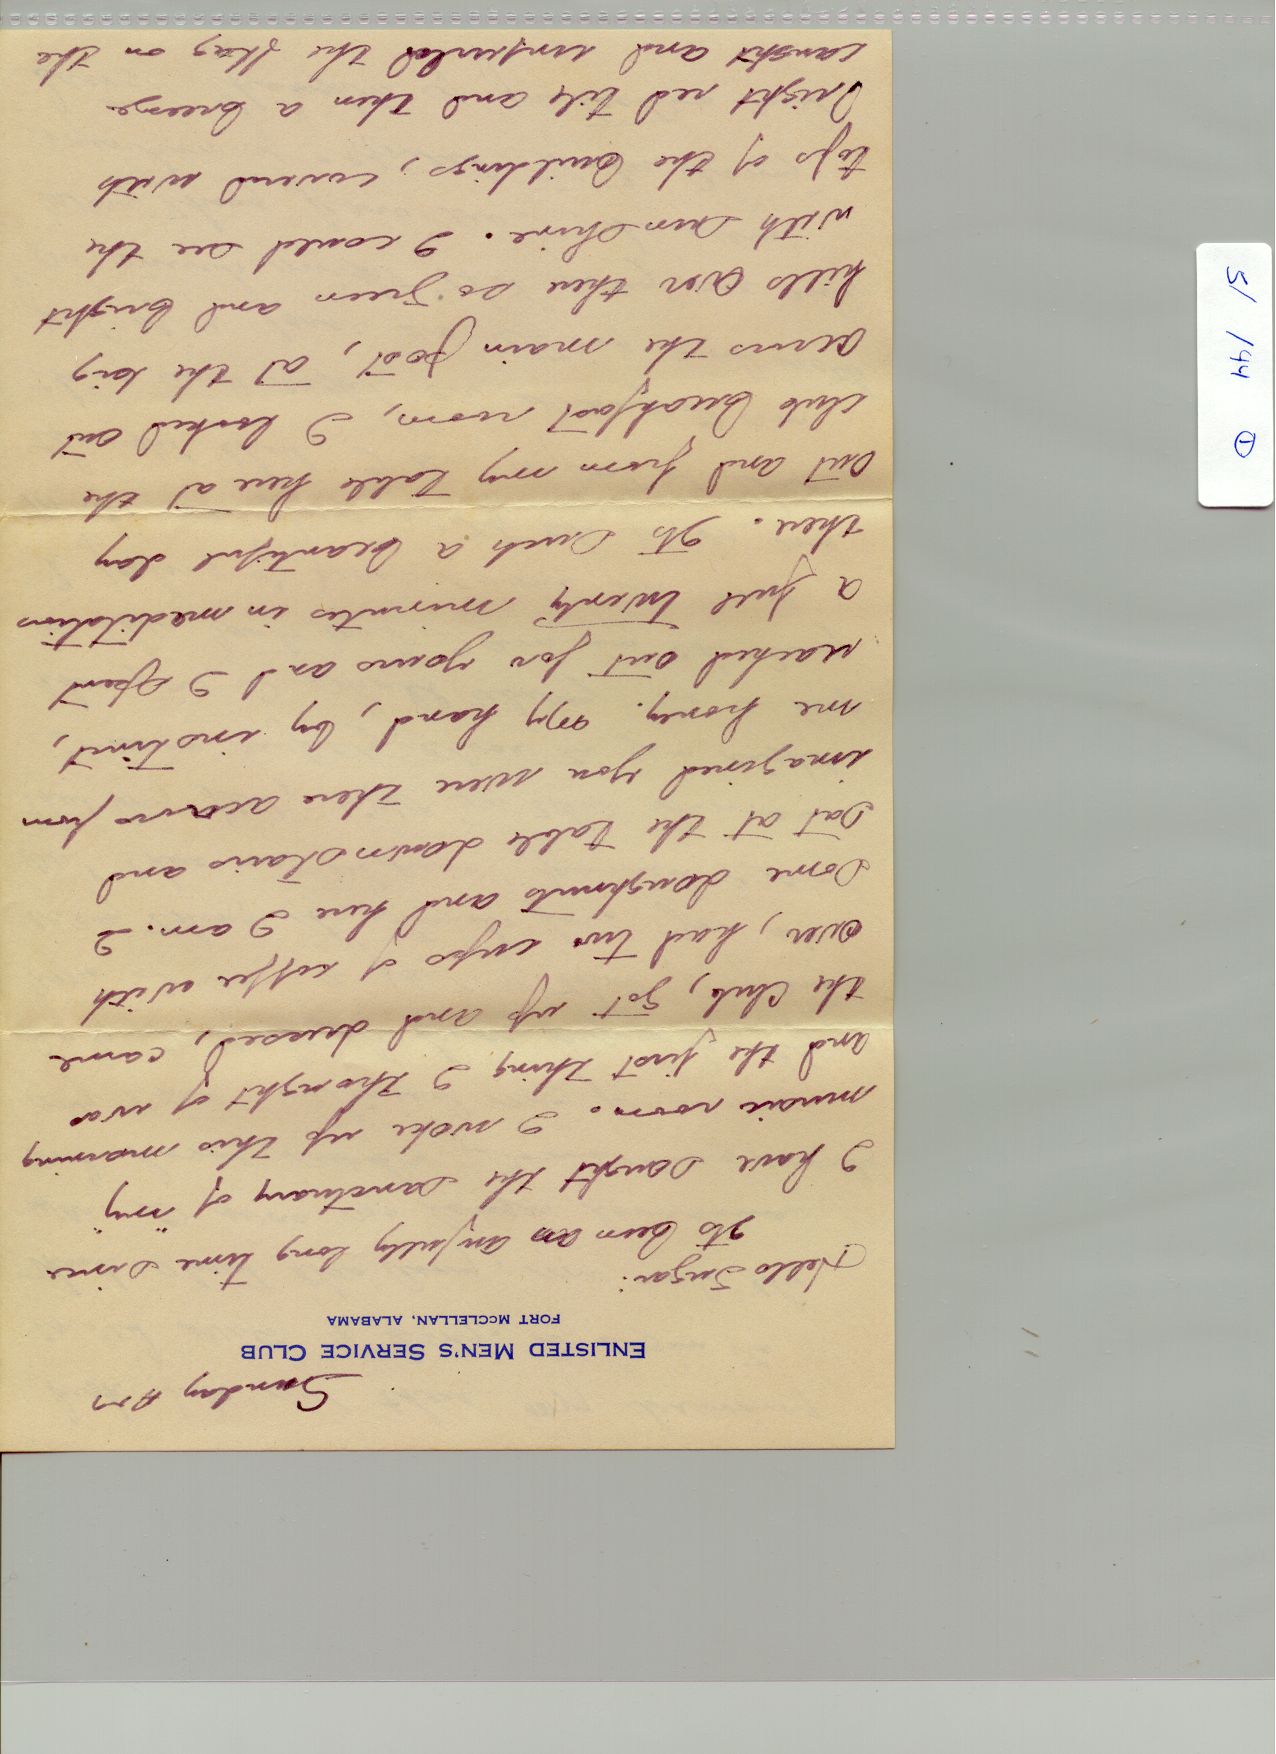 Sunday AM
ENLISTED MEN'S SERVICE CLUB
FORT MCCLELLAN, ALABAMA
Hello Sugar:
Its been an awfully long time since
I have sought the sanctuary of "my"
music room. I woke up this morning
and the first thing I thought of was
the Club, got up and dressed, came
over, had two cups of coffee with
some doughnuts and here I am. I
sat at the table downstairs and
imagined you were there across from
me honey. My hand, by instinct,
reached out for yours and I spent
a full twenty minutes in meditation
there. Its such a beautiful day
out and from my table here at the
club breakfast room, I looked out
across the main post, at the big
hills over there so green and bright
with sunshine. I could see the
tops of the buildings, covered with
bright red tile and then a breeze
caught and unfurled the flag on the
5/ /44 ①